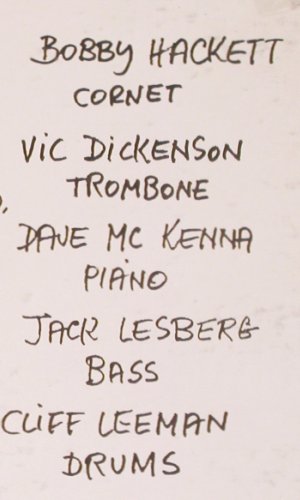 BOBBY HACKETT
CORNET
ViC DiCKENSON
TROMBONE
DAVE MC KENNA
PIANO
JACK LESBERG
BASS
CLiFF LEEMAN
DRUMS